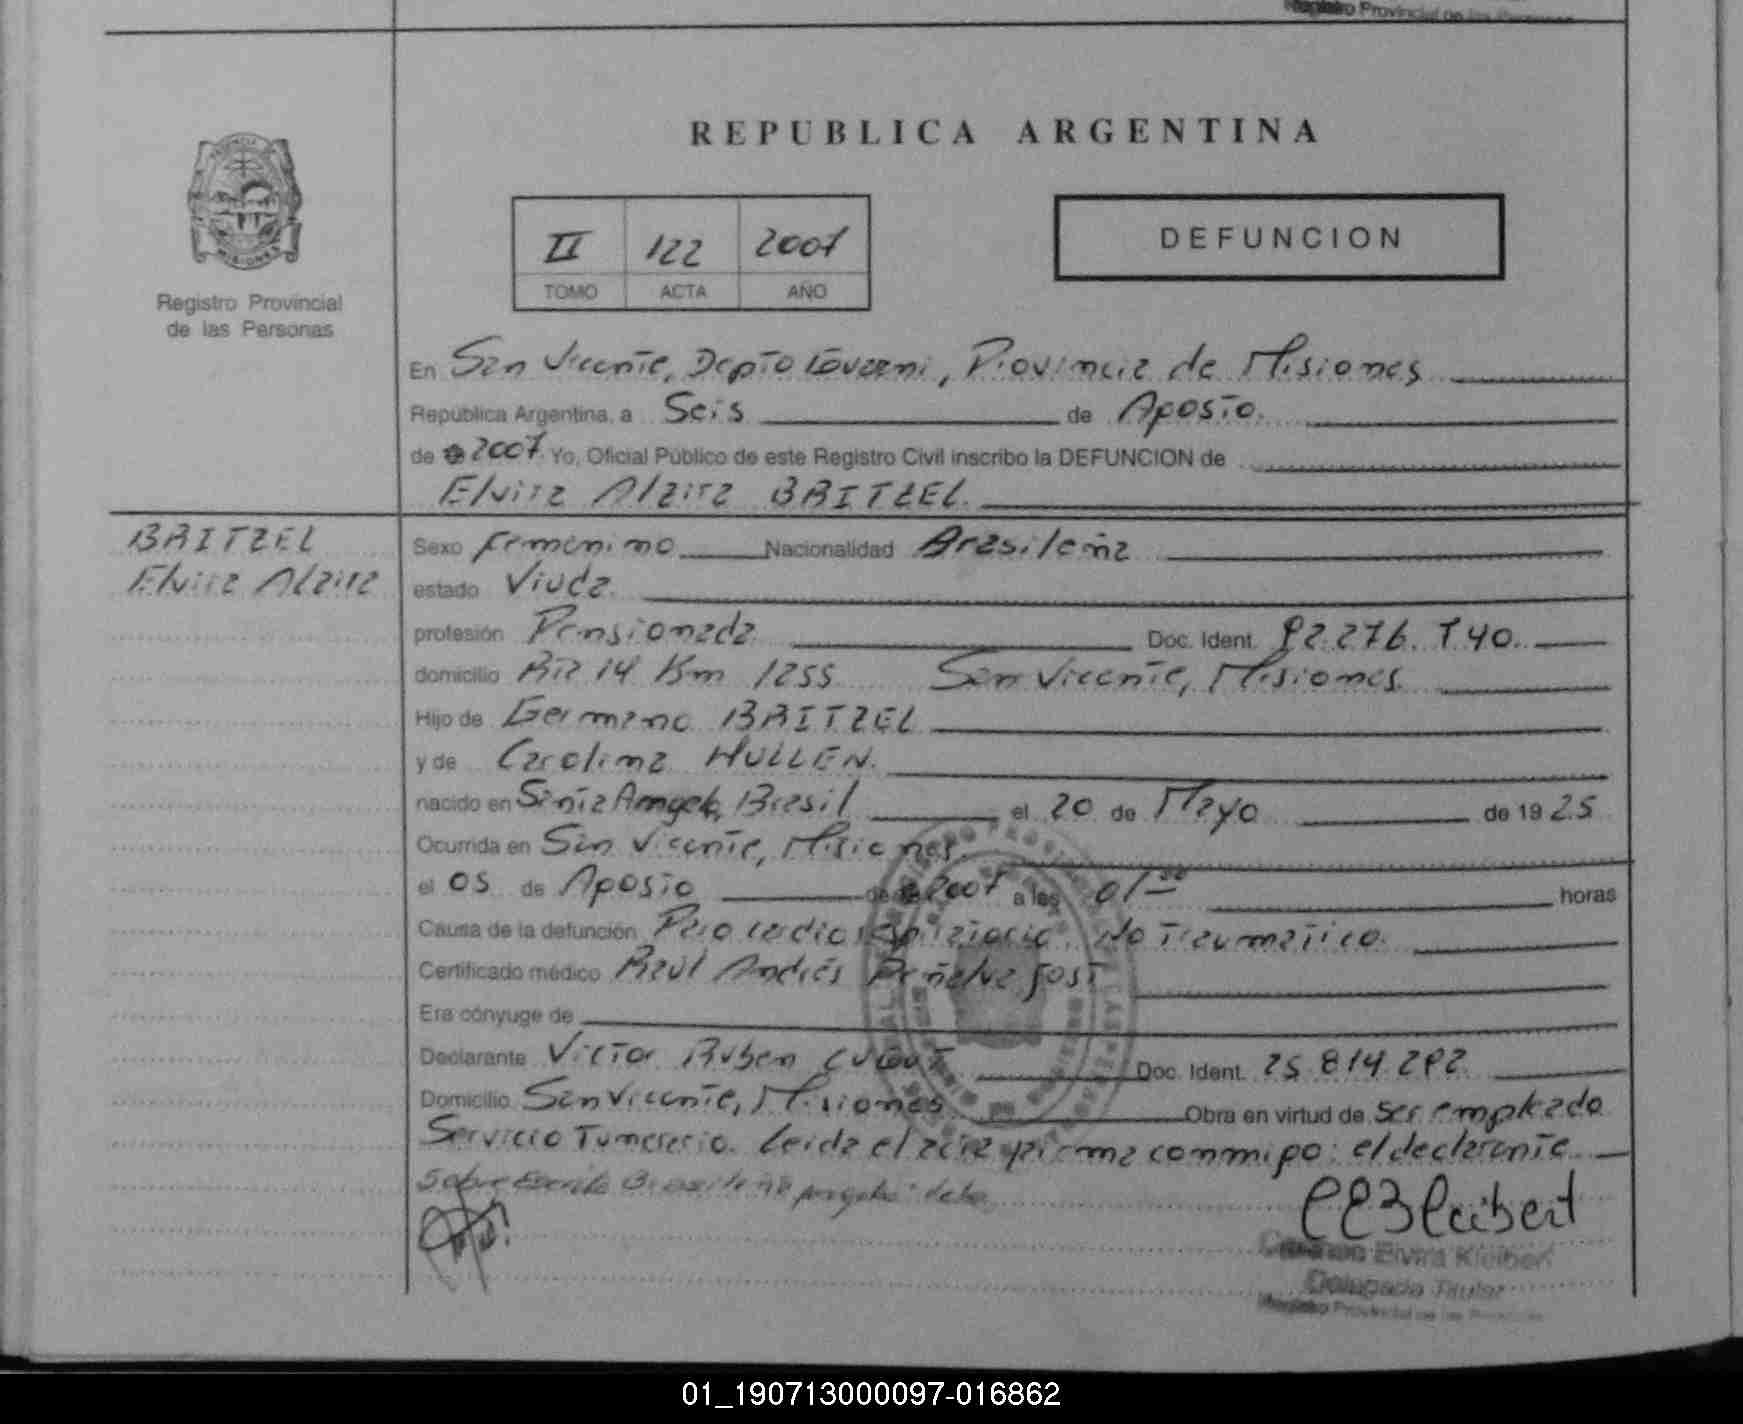 Registro Provincial de las Personas
REPUBLICA ARGENTINA
II 122 2007
TOMO ACTA AÑO
DEFUNCION
PROVINCIA
MISIONES
Registro Provincial
de las Personas
En San Vicente, Depto Guaraní, Provincia de Misiones
República Argentina, a Seis de Agosto.
de 2007 Yo, Oficial Público de este Registro Civil inscribo la DEFUNCION de
Elvira Alzira BRITZEL.
BRITZEL
Elvira Alzira
Sexo femenino Nacionalidad Brasileña
estado Viuda.
profesión Pensionada Doc. Ident. 92.276.740.
domicilio Rta 14 Km 1255 San Vicente, Misiones
Hijo de Germano BRITZEL
y de Carolina HULLEN.
nacido en Santa Angelo, Brasil el 20 de Mayo de 1925
Ocurrida en San Vicente, Misiones.
el 05 de Agosto de 2007 a las 01 horas
Causa de la defunción Paro cardio respiratorio No Traumatico.
Certificado médico Raúl Andrés Peñalva Fost
Era cónyuge de
Declarante Victor Ruben Doc. Ident. 25.814.292
Domicilio San Vicente, Misiones Obra en virtud de ser empleado
Servicio Funerario. Leida el acta firma conmigo: el declarante
Sobre Escrito Brasileña angelo vale
Elvira Kleibert
Delegada Titular
Registro Provincial de las Personas
01_190713000097-016862